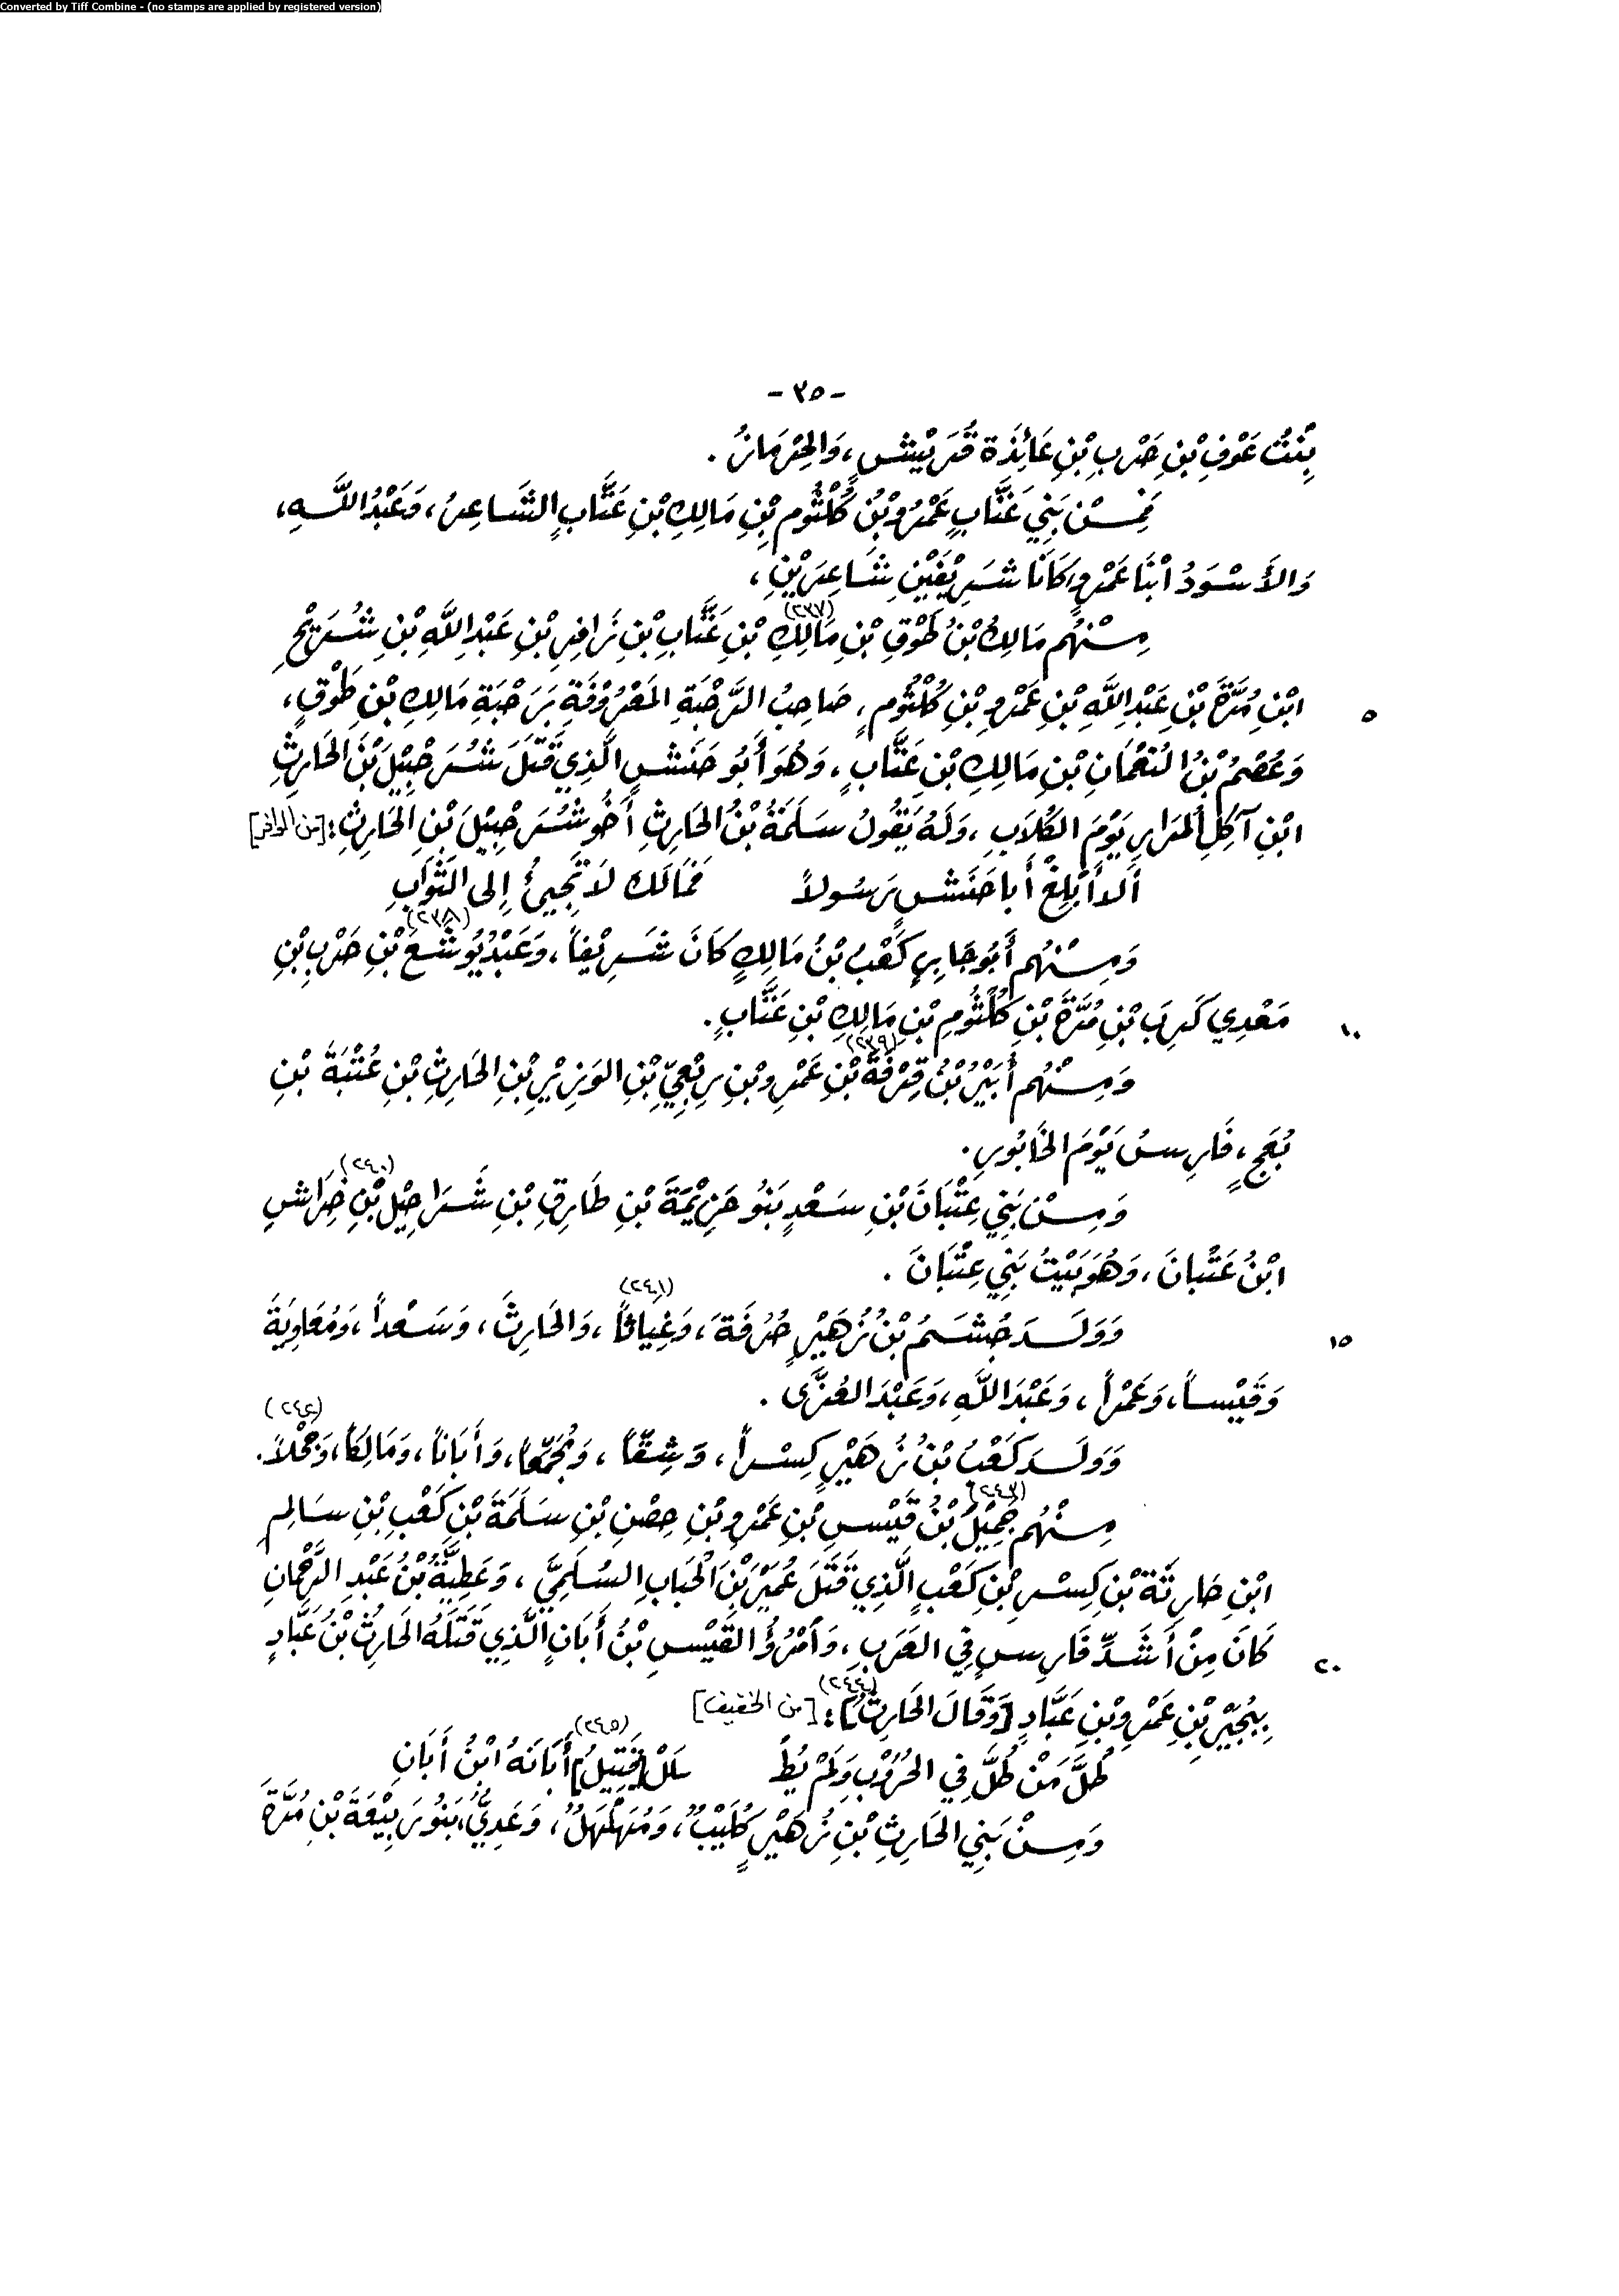 Converted by Tiff Combine - (no stamps are applied by registered version)
- ٣٥ -
بِنْتُ عَوْفِ بْنِ حَرْبِ بْنِ عَائِذَةَ قُرَيْشٍ، وَالحِرْمَازُ.
فَمِنْ بَنِي عَتَّابٍ عَمْرُو بْنُ كُلْثُومِ بْنِ مَالِكِ بْنِ عَتَّابٍ الشَّاعِرُ، وَعَبْدُ اللَّهِ،
وَالأَسْوَدُ ابْنَا عَمْرٍو كَانَا شَرِيْفَيْنِ شَاعِرَيْنِ،
مِنْهُم مَالِكُ بْنُ طَوْقِ بْنِ مَالِكِ (٢٣٧) بْنِ عَتَّابِ بْنِ زَافِرِ بْنِ عَبْدِ اللَّهِ بْنِ شُرَيْحِ
٥ ابْنِ مُرَّةَ بْنِ عَبْدِ اللَّهِ بْنِ عَمْرِو بْنِ كُلْثُومٍ، صَاحِبُ الرَّحْبَةِ المَعْرُوْفَةِ بِرَحْبَةِ مَالِكِ بْنِ طَوْقٍ،
وَعُصْمُ بْنُ النُّعْمَانِ بْنِ مَالِكِ بْنِ عَتَّابٍ، وَهُوَ أَبُو حَنَشٍ الَّذِي قَتَلَ شُرَحْبِيْلَ بْنَ الحَارِثِ
ابْنِ آكِلِ المُرَارِ يَوْمَ الكُلَابِ، وَلَهُ يَقُولُ سَلَمَةُ بْنُ الحَارِثِ أَخُو شُرَحْبِيْلَ بْنِ الحَارِثِ: [من الوافر]
أَلا أَبْلِغْ أَبا حَنَشٍ رَسُولاً فَمَا لَكَ لَا تَجِيئُ إِلى الثَّوَابِ
وَمِنْهُم أَبُو جَابِرٍ كَعْبُ بْنُ مَالِكٍ كَانَ شَرِيْفاً، وَعَبْدُ يُوشَعَ (٢٣٨) بْنِ حَرْبِ بْنِ
١٠ مَعْدِي كَرِبَ بْنِ مُرَّةَ بْنِ كُلْثُومِ بْنِ مَالِكِ بْنِ عَتَّابٍ.
وَمِنْهُم أُبَيْرُ بْنُ قِرْفَةَ (٢٣٩) بْنِ عَمْرِو بْنِ رِبْعِيِّ بْنِ الوَزِيْرِ بْنِ الحَارِثِ بْنِ عُتْبَةَ بْنِ
بُعَجٍ، فَارِسُ يَوْمَ الخَابُورِ.
وَمِنْ بَنِي عِتْبَانَ بْنِ سَعْدٍ بَنُو حَزِيْمَةَ بْنِ طَارِقِ بْنِ شَرَاحِيْلَ بْنِ خِرَاشِ (٢٤٠)
ابْنُ عَتْبانَ، وَهُوَ بَيْتُ بَنِي عِتْبَانَ.
١٥ وَوَلَدَ جُشَمُ بْنُ زُهَيْرٍ حُرْفَةَ، وَغِيَاثاً (٢٤١)، وَالحَارِثَ، وَسَعْداً، وَمُعَاوِيَةَ
وَقَيْساً، وَعَمْراً، وَعَبْدَ اللَّهِ، وَعَبْدَ العُزَّى.
وَوَلَدَ كَعْبُ بْنُ زُهَيْرٍ كِسْراً، وَشِقّاً، وَمُجَمِّعاً، وَأَبَاناً، وَمَالِكاً، وَجَحْلاً. (٢٤٢)
مِنْهُم جَمِيْلُ (٢٤٣) بْنُ قَيْسِ بْنِ عَمْرِو بْنِ حِصْنِ بْنِ سَلَمَةَ بْنِ كَعْبِ بْنِ سَالِمِ
ابْنِ حَارِثَةَ بْنِ كِسْرِ بْنِ كَعْبٍ الَّذِي قَتَلَ عُمَيْرَ بْنَ الْحُبَابِ السُّلَمِيَّ، وَعَطِيَّةُ بْنُ عَبْدِ الرَّحْمَانِ
٢٠ كَانَ مِنْ أَشَدِّ فَارِسٍ فِي العَرَبِ، وَامْرُؤُ القَيْسِ بْنُ أَبَانٍ الَّذِي قَتَلَهُ الحَارِثُ بْنُ عَبَّادٍ
بِبُجَيْرِ بْنِ عَمْرِو بْنِ عَبَّادٍ [وَقَالَ الحَارِثُ] (٢٤٤): [من الخفيف]
طُلَّ مَنْ طُلَّ فِي الحُرُوْبِ وَلَمْ يُطْ ـلَلْ [قَتِيلٌ] أَبَانَهُ ابْنُ أَبَانِ (٢٤٥)
وَمِنْ بَنِي الحَارِثِ بْنِ زُهَيْرٍ كُلَيْبٌ، وَمُهَلْهِلٌ، وَعَدِيٌّ، بَنُو رَبِيْعَةَ بْنِ مُرَّةَ